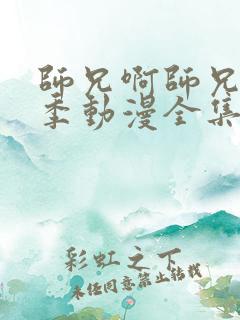 師兄啊師兄
季動漫全集
彩虹之下
未经同意禁止转载